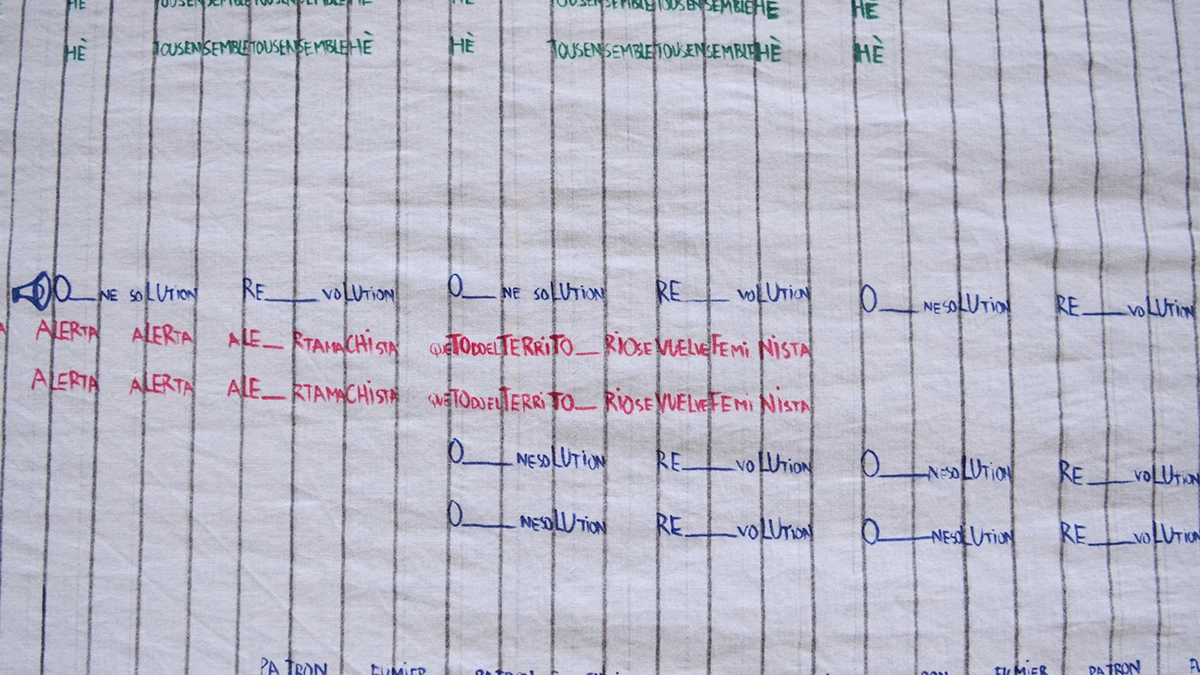 HÈ TOUSENSEMBLETOUSENSEMBLEHÈ HÈ TOUSENSEMBLETOUSENSEMBLEHÈ HÈ
HÈ TOUSENSEMBLETOUSENSEMBLEHÈ HÈ TOUSENSEMBLETOUSENSEMBLEHÈ HÈ
O__NE SOLUTION RE____VOLUTION O__NE SOLUTION RE____VOLUTION O___NESOLUTION RE___VOLUTION
ALERTA ALERTA ALE__RTAMACHISTA QUETODOELTERRITO__RIOSEVUELVEFEMINISTA
ALERTA ALERTA ALE__RTAMACHISTA QUETODOELTERRITO__RIOSEVUELVEFEMINISTA
O____NESOLUTION RE____VOLUTION O____NESOLUTION RE____VOLUTION
O____NESOLUTION RE____VOLUTION O____NESOLUTION RE____VOLUTION
PATRON FUMIER PATRON FUMIER PATRON